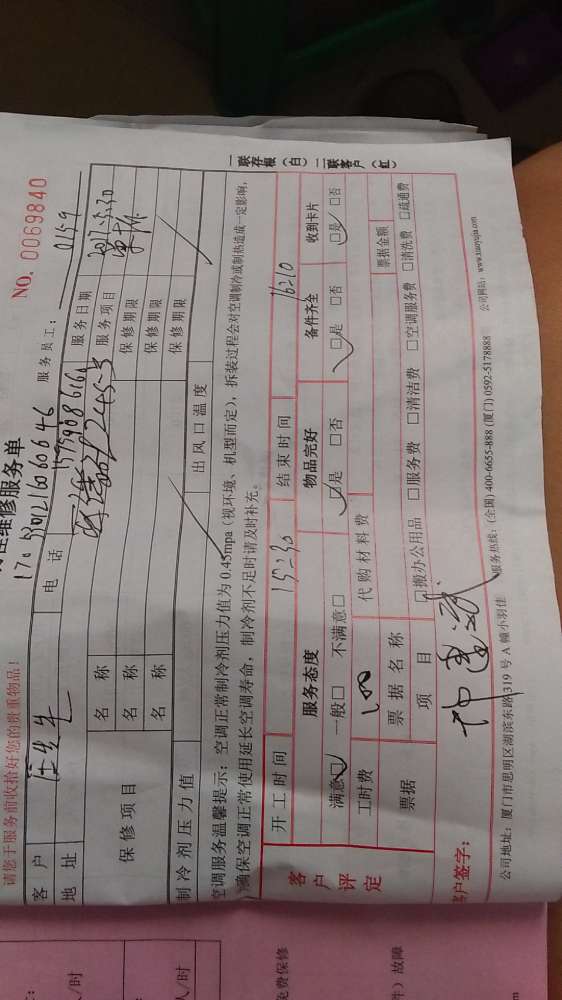 维修服务单
NO. 0069840
请您于服务前收拾好您的贵重物品！
服务员工： 0159
客户
电话
服务日期 2017.5.30
地址
服务项目
保修项目
名称
保修期限
名称
保修期限
名称
保修期限
制冷剂压力值
出风口温度
空调服务温馨提示：空调正常制冷剂压力值为 0.45mpa（视环境、机型而定），拆装过程会对空调制冷或制热造成一定影响，
确保空调正常使用延长空调寿命，制冷剂不足时请及时补充。
一联存根（白） 二联客户（红）
客户评定
开工时间 15:30 结束时间 16:10
服务态度 物品完好 备件齐全 收到卡片
满意□ 一般□ 不满意□ □是 □否 □是 □否 □是 □否
工时费 100 代购材料费
票据 票据名称 票据金额
项目 □搬办公用品 □服务费 □清洁费 □空调服务费 □清洗费 □疏通费
客户签字：
公司地址：厦门市思明区湖滨东路 319 号 A 幢小羽佳 服务热线：(全国) 400-6655-888 (厦门) 0592-5178888 公司网站：www.xiaoyujia.com
人/时
人/时
免费保修
件）故障